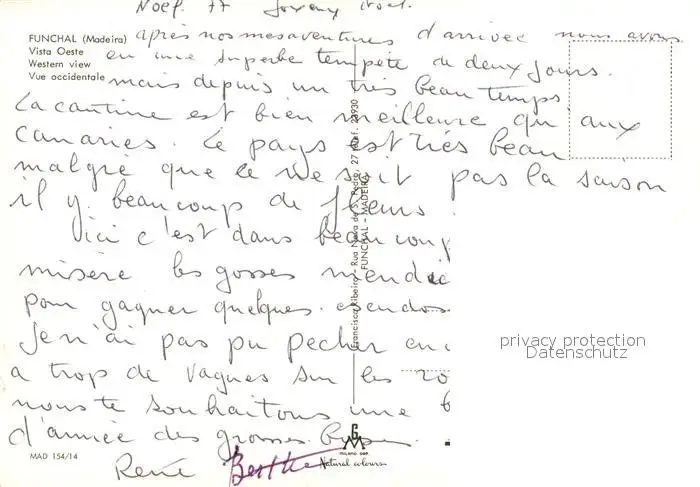 Noël 77 Joyeux Noël.
FUNCHAL (Madeira)
Vista Oeste
Western view
Vue occidentale
après nos mesaventures d'arrivée nous avons
eu une superbe tempête de deux jours.
mais depuis un très beau temps
La cantine est bien meilleure qu'aux
canaries. Le pays est très beau
malgré que ce ne soit pas la saison
il y beaucoup de fleurs.
Ici c'est dans beaucoup
misère les gosses mendie
pour gagner quelques escudos
Je n'ai pas pu pecher enc
a trop de vagues sur les ro
nous te souhaitons une b
d'année des grosses bises.
René Berthe
Francisco Ribeiro - Rua Nova de S. Pedro, 27
FUNCHAL - MADEIRA
privacy protection
Datenschutz
MAD 154/14
MILANO
Natural colours